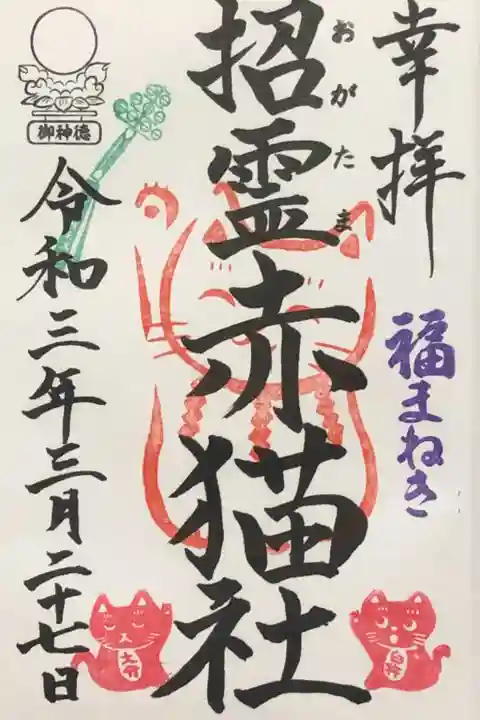 幸拝
福まねき
招霊赤猫社
おがたま
御神徳
令和三年三月二十七日